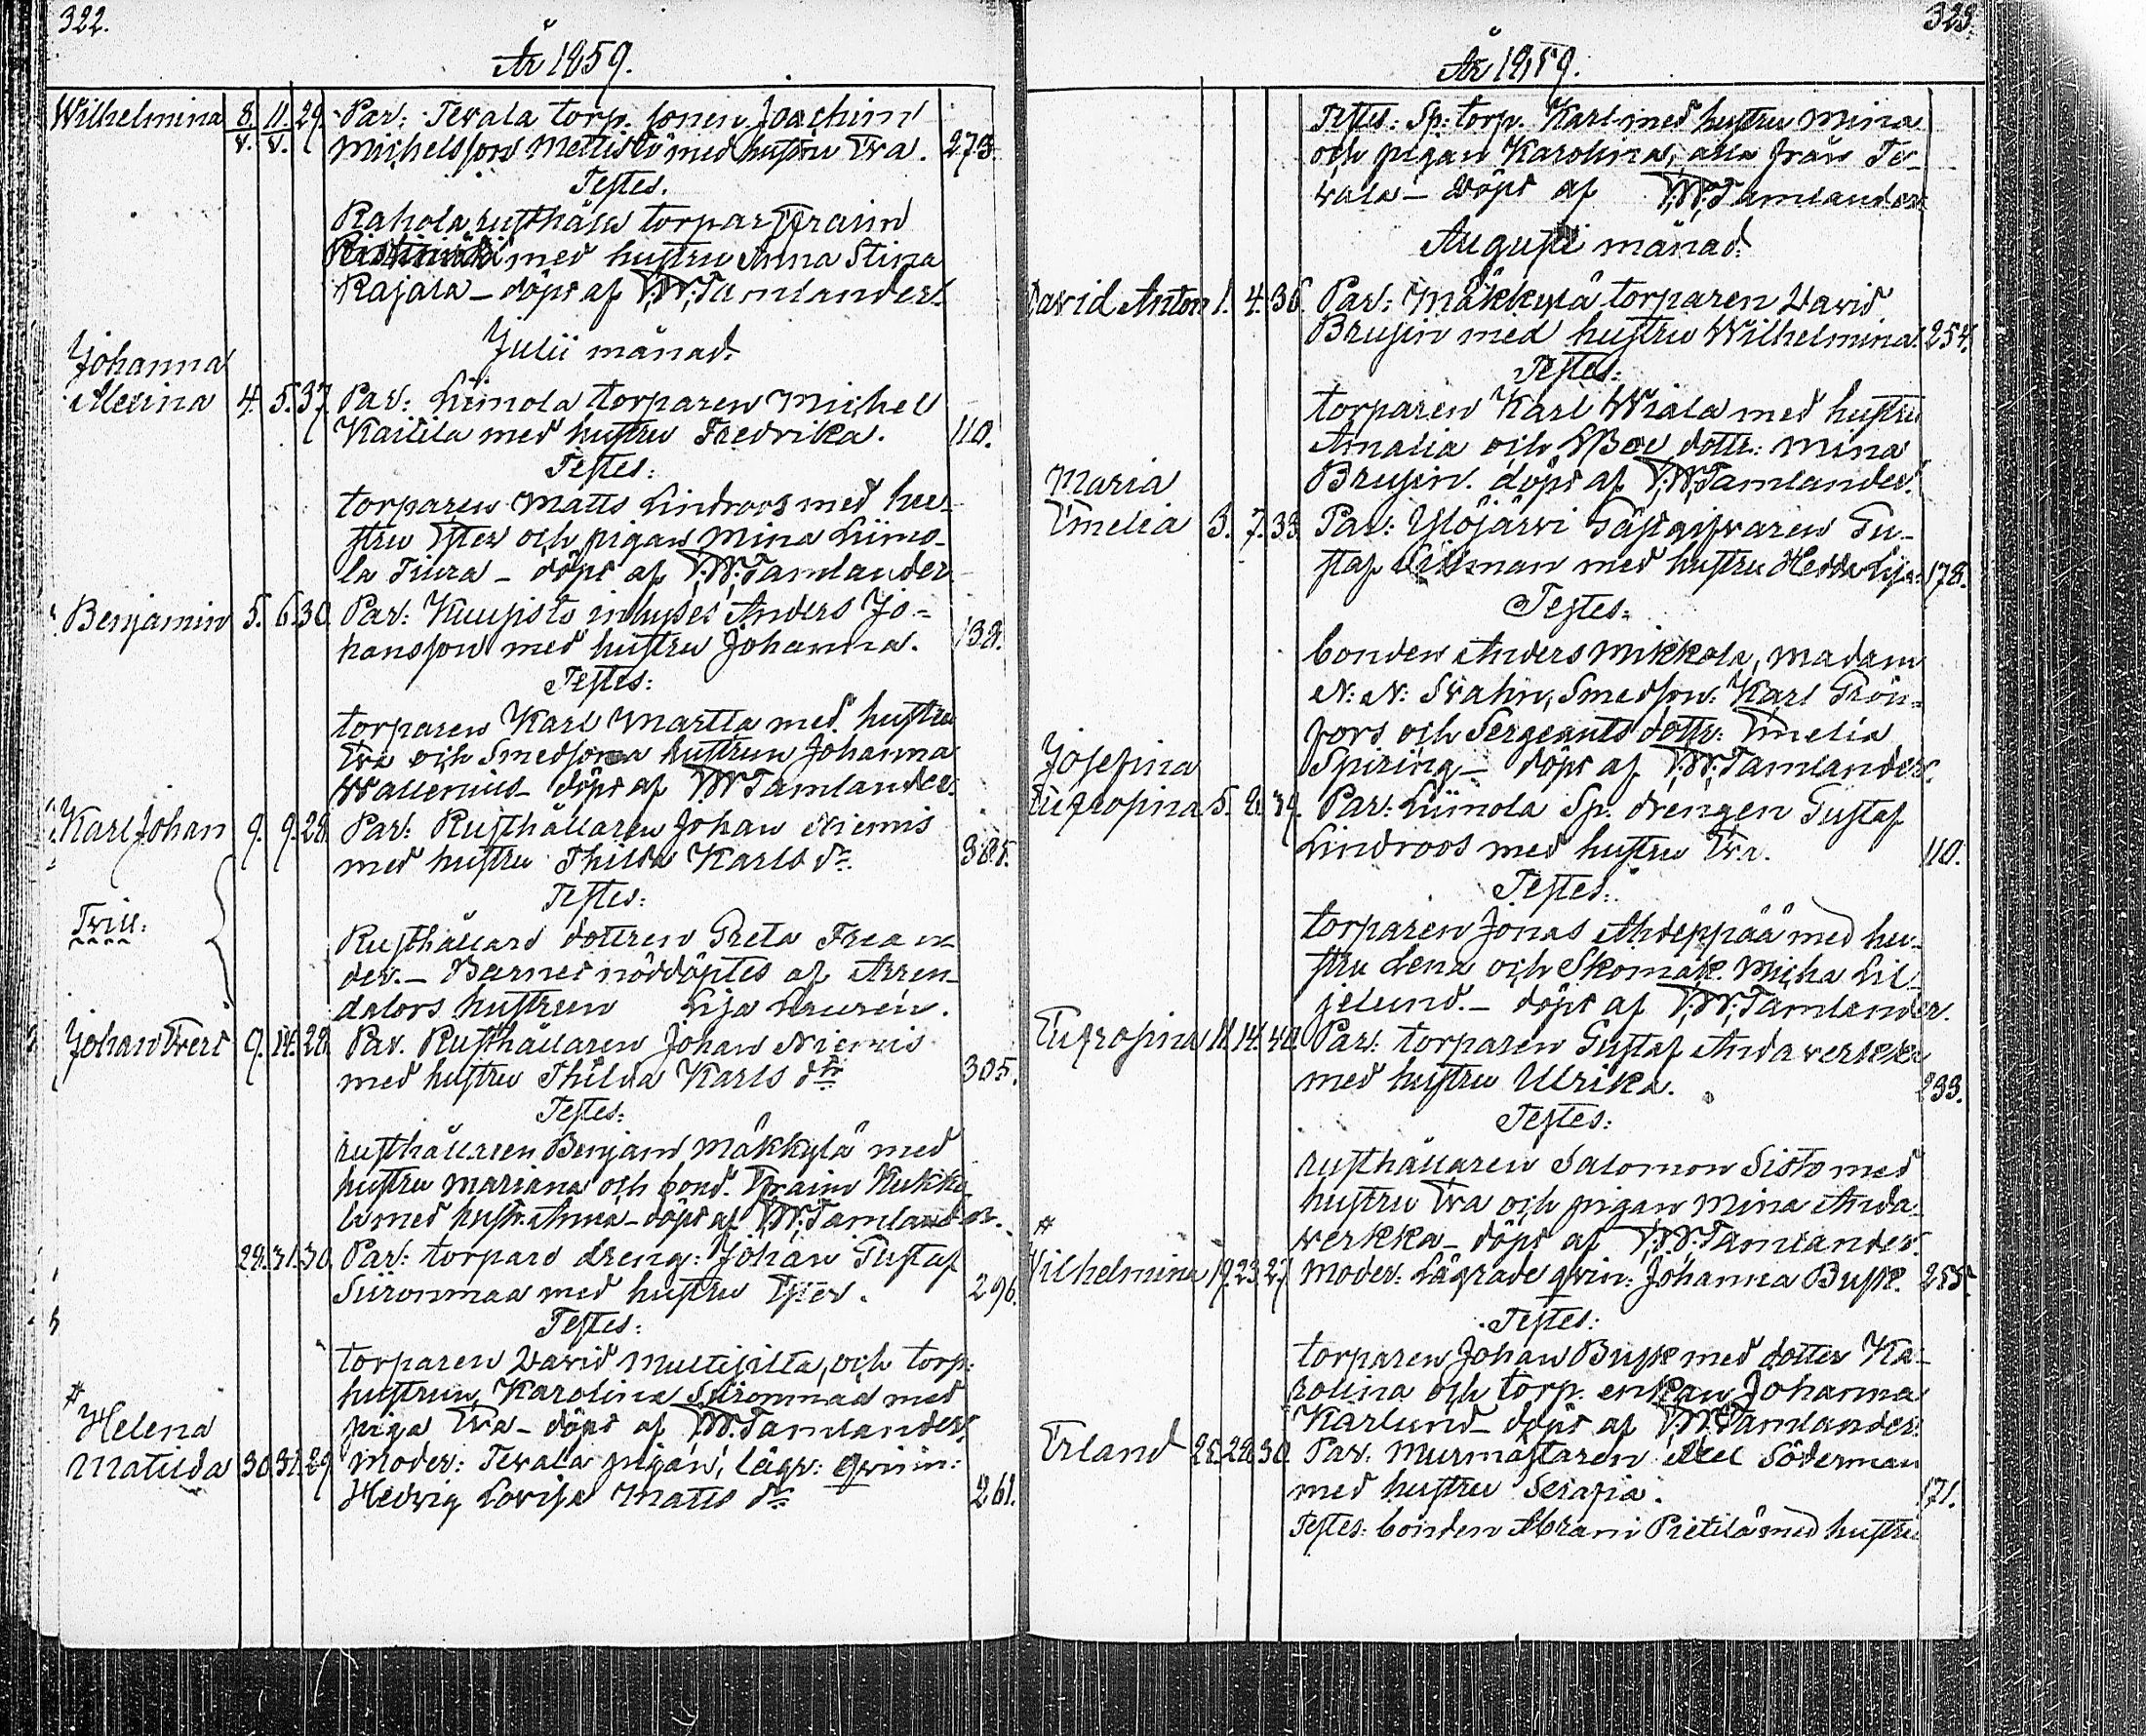 322.
År 1859.
Wilhelmina 8. 11. 29. Par: Tevala torp. sonen Joachim
V. V. Michelsson Mettistö med hustru Eva. 273.
Testes.
Rahola rusthålls torpar Efraim
med hustru Anna Stina
Rajala – döpt af T.W. Tamlander.
Julii månad.
Johanna
Alexina 4. 5. 37. Par: Liimola torparen Michel
Kaitila med hustru Fredrika. 110.
Testes:
torparen Matts Lindroos med hu-
stru Ester och pigan Mina Liimo-
la Tiura – döpt af T.W. Tamlander
Benjamin 5. 6. 30. Par: Kuusisto inhyses Anders Jo-
hansson med hustru Johanna. 132.
Testes:
torparen Karl Martta med hustru
Eva och Smedsona hustrun Johanna
Wallenius – döpt af T.W. Tamlander.
Karl Johan 9. 9. 28. Par: Rusthållaren Johan Niemis
med hustru Thilda Karls dr 305.
Testes:
Tvill: Rusthållars dottren Greta Frean-
der. – Barnet nöddöptes af Arren-
dators hustrun Lisa Lauren.
Johan Evert 9. 14. 28. Par. Rusthållaren Johan Niemis
med hustru Thilda Karls dtr 305.
Testes:
rusthållaren Benjam Mäkkylä med
hustru Mariana och bond. Efraim Kukko
la med hustr. Anna – döpt af T.W. Tamlander.
29. 31. 30. Par: torpars dreng: Johan Gustaf
Siironmaa med hustru Ester. 296.
Testes:
torparen David Multisilta, och torp:
hustrun Karolina Siironmaa med
piga Eva – döpt af T.W. Tamlander.
#
Helena
Matilda 30. 31. 29. Moder: Tevala pigan, lägr: qvin:
Hedvig Lovisa Matts dr 261.
323.
År 1859.
Testes: Sp: torp. Karl med hustru Mina
och pigan Karolina, alla från Te-
vala – döpt af T.W. Tamlander.
Augusti månad.
David Anton 1. 4. 36. Par: Mäkkylä torparen David
Brusin med hustru Wilhelmina. 254.
Testes:
torparen Karl Wiala med hustru
Amalia och dottr: Mina
Brusin. döpt af T.W. Tamlander.
Maria
Emelia 3. 7. 33. Par: Ylöjärvi Gästgifvaren Gu-
staf Killman med hustru Hedda Lisa. 178.
Testes:
bonden Anders Mikkola, Madam
N: N: Svahn, Smedson: Karl Grön-
fors och Sergeants dottr: Emelia
Spiring – döpt af T.W. Tamlander.
Josefina
Eufrosina 5. 8. 39. Par: Liimola Sp. drengen Gustaf
Lindroos med hustru Eva. 110.
Testes:
torparen Jonas Ahdeppää med hu-
stru Lena och Skomak. Micha Lil-
jelund. – döpt af T.W. Tamlander.
Eufrosina 11. 14. 40. Par: torparen Gustaf Andaverkka
med hustru Ulrika. 233.
Testes:
rusthållaren Salomon Sisto med
hustru Eva och pigan Mina Anda-
verkka – döpt af T.W. Tamlander.
#
Vilhelmina 19. 23. 27. Moder: Lägrade qvin: Johanna Busk. 255.
Testes:
torparen Johan Busk med dotter Ka-
rolina och torp. enkan Johanna
Karlund – döpt af T.W. Tamlander.
Erland 25. 28. 30. Par: Murmästaren Axel Söderman
med hustru Serafia. 171.
Testes: bonden Abram Pietilä med hustru